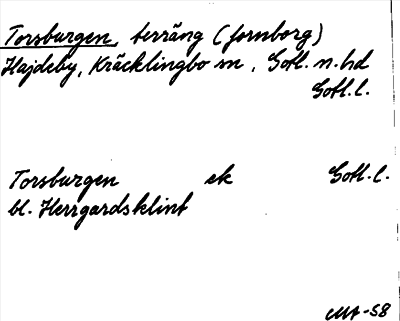 Torsburgen, terräng (fornborg)
Hajdeby, Kräcklingbo sn, Gotl. n. hd
Gotl. l.
Torsburgen ek Gotl. l.
bl. Herrgardsklint
MA-58